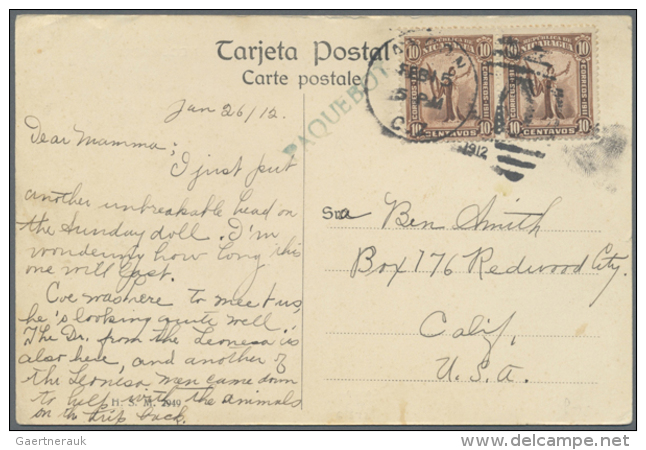 Tarjeta Postal
Carte postale
PAQUEBOT
FEB 5
5 PM
C Z
1912
10 NICARAGUA 10
CORREOS
10 CENTAVOS 10
NICARAGUA 10
CORREOS
10 CENTAVOS 10
Jan 26/12.
Dear Mamma;
I just put
another unbreakable head on
the Sunday doll. I'm
wondering how long this
one will last.
Coe was here to meet us,
he's looking quite well.
The Dr. from the Leonesa is
also here, and another of
the Leonesa men came down
to help with the animals
on th trip back.
H. S. M. 2949
Sra Ben Smith
Box 176 Redwood City.
Calif.
U.S.A.
Gaertnerauk
www.delcampe.net